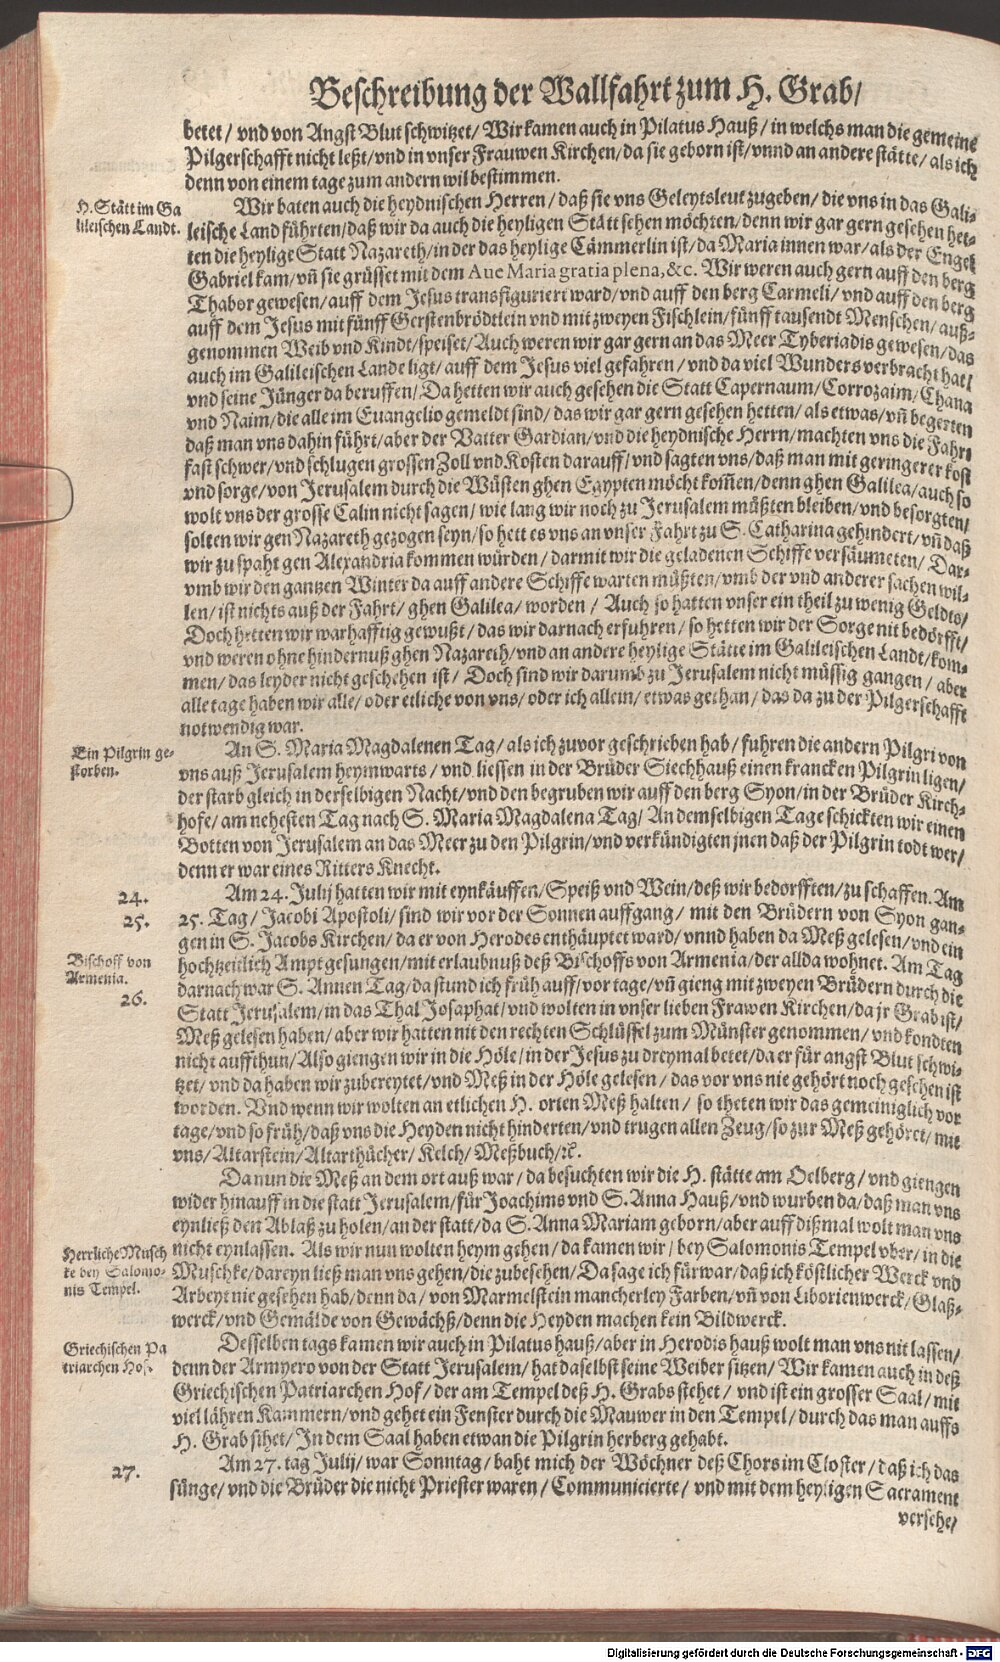 Beschreibung der Wallfahrt zum H. Grab/
betet/ vnd von Angst Blut schwitzet/ Wir kamen auch in Pilatus Hauß/ in welchs man die gemeine
Pilgerschafft nicht leßt/ vnd in vnser Frauwen Kirchen/ da sie geborn ist/ vnnd an andere stätte/ als ich
denn von einem tage zum andern wil bestimmen.
H. Stätt im Ga
lileischen Landt.
Wir baten auch die heydnischen Herren/ daß sie vns Geleytsleut zugeben/ die vns in das Gali-
leische Land führten/ daß wir da auch die heyligen Stätt sehen möchten/ denn wir gar gern gesehen het-
ten die heylige Statt Nazareth/ in der das heylige Cämmerlin ist/ da Maria innen war/ als der Engel
Gabriel kam/ vñ sie grüsset mit dem Aue Maria gratia plena, &c. Wir weren auch gern auff den berg
Thabor gewesen/ auff dem Jesus transfiguriert ward/ vnd auff den berg Carmeli/ vnd auff den berg
auff dem Jesus mit fünff Gerstenbrödtlein vnd mit zweyen Fischlein/ fünff tausendt Menschen/ auß-
genommen Weib vnd Kindt/ speiset/ Auch weren wir gar gern an das Meer Tyberiadis gewesen/ das
auch im Galileischen Lande ligt/ auff dem Jesus viel gefahren/ vnd da viel Wunders verbracht hat/
vnd seine Jünger da beruffen/ Da hetten wir auch gesehen die Statt Capernaum/ Corrozaim/ Chana
vnd Naim/ die alle im Euangelio gemeldt sind/ das wir gar gern gesehen hetten/ als etwas/ vñ begerten
daß man vns dahin führt/ aber der Vatter Gardian/ vnd die heydnische Herrn/ machten vns die Fahrt
fast schwer/ vnd schlugen grossen Zoll vnd Kosten darauff/ vnd sagten vns/ daß man mit geringerer kost
vnd sorge/ von Jerusalem durch die Wüsten ghen Egypten möcht kom̃en/ denn ghen Galilea/ auch so
wolt vns der grosse Calin nicht sagen/ wie lang wir noch zu Jerusalem müßten bleiben/ vnd besorgten/
solten wir gen Nazareth gezogen seyn/ so hett es vns an vnser Fahrt zu S. Catharina gehindert/ vñ daß
wir zu spaht gen Alexandria kommen würden/ darmit wir die geladenen Schiffe versäumeten/ Dar-
vmb wir den gantzen Winter da auff andere Schiffe warten müßten/ vmb der vnd anderer sachen wil-
len/ ist nichts auß der Fahrt/ ghen Galilea/ worden/ Auch so hatten vnser ein theil zu wenig Geldts/
Doch hetten wir warhafftig gewußt/ das wir darnach erfuhren/ so hetten wir der Sorge nit bedörfft/
vnd weren ohne hindernuß ghen Nazareth/ vnd an andere heylige Stätte im Galileischen Landt/ kom-
men/ das leyder nicht geschehen ist/ Doch sind wir darumb zu Jerusalem nicht müssig gangen/ aber
alle tage haben wir alle/ oder etliche von vns/ oder ich allein/ etwas gethan/ das da zu der Pilgerschafft
notwendig war.
Ein Pilgrin ge-
storben.
An S. Maria Magdalenen Tag/ als ich zuvor geschrieben hab/ fuhren die andern Pilgri von
vns auß Jerusalem heymwarts/ vnd liessen in der Brüder Siechhauß einen krancken Pilgrin ligen/
der starb gleich in derselbigen Nacht/ vnd den begruben wir auff den berg Syon/ in der Brüder Kirch-
hofe/ am nehesten Tag nach S. Maria Magdalena Tag/ An demselbigen Tage schickten wir einen
Botten von Jerusalem an das Meer zu den Pilgrin/ vnd verkündigten jnen daß der Pilgrin todt wer/
denn er war eines Ritters Knecht.
24.
Am 24. Julij hatten wir mit eynkäuffen/ Speiß vnd Wein/ deß wir bedorfften/ zu schaffen. Am
25.
25. Tag/ Jacobi Apostoli/ sind wir vor der Sonnen auffgang/ mit den Brüdern von Syon gan-
gen in S. Jacobs Kirchen/ da er von Herodes enthäuptet ward/ vnnd haben da Meß gelesen/ vnd ein
Bischoff von
Armenia.
hochzeitlich Ampt gesungen/ mit erlaubnuß deß Bischoffs von Armenia/ der allda wohnet. Am Tag
26.
darnach war S. Annen Tag/ da stund ich früh auff/ vor tage/ vñ gieng mit zweyen Brüdern durch die
Statt Jerusalem/ in das Thal Josaphat/ vnd wolten in vnser lieben Frawen Kirchen/ da jr Grab ist/
Meß gelesen haben/ aber wir hatten nit den rechten Schlüssel zum Münster genommen/ vnd kondten
nicht auffthun/ Also giengen wir in die Höle/ in der Jesus zu dreymal betet/ da er für angst Blut schwi-
tzet/ vnd da haben wir zubereytet/ vnd Meß in der Höle gelesen/ das vor vns nie gehört noch gesehen ist
worden. Vnd wenn wir wolten an etlichen H. orten Meß halten/ so theten wir das gemeiniglich vor
tage/ vnd so früh/ daß vns die Heyden nicht hinderten/ vnd trugen allen Zeug/ so zur Meß gehöret/ mit
vns/ Altarstein/ Altarthücher/ Kelch/ Meßbuch/ ꝛc.
Da nun die Meß an dem ort auß war/ da besuchten wir die H. stätte am Oelberg/ vnd giengen
wider hinauff in die statt Jerusalem/ für Joachims vnd S. Anna Hauß/ vnd wurben da/ daß man vns
eynließ den Ablaß zu holen/ an der statt/ da S. Anna Mariam geborn/ aber auff dißmal wolt man vns
Herrliche Musch
ke bey Salomo-
nis Tempel.
nicht eynlassen. Als wir nun wolten heym gehen/ da kamen wir/ bey Salomonis Tempel vber/ in die
Muschke/ dareyn ließ man vns gehen/ die zubesehen/ Da sage ich fürwar/ daß ich köstlicher Werck vnd
Arbeyt nie gesehen hab/ denn da/ von Marmelstein mancherley Farben/ vñ von Liborienwerck/ Glaß-
werck/ vnd Gemälde von Gewächß/ denn die Heyden machen kein Bildwerck.
Griechischen Pa
triarchen Hof.
Desselben tags kamen wir auch in Pilatus hauß/ aber in Herodis hauß wolt man vns nit lassen/
denn der Armyero von der Statt Jerusalem/ hat daselbst seine Weiber sitzen/ Wir kamen auch in deß
Griechischen Patriarchen Hof/ der am Tempel deß H. Grabs stehet/ vnd ist ein grosser Saal/ mit
viel lähren Kammern/ vnd gehet ein Fenster durch die Mauwer in den Tempel/ durch das man auffs
H. Grab sihet/ In dem Saal haben etwan die Pilgrin herberg gehabt.
27.
Am 27. tag Julij/ war Sonntag/ baht mich der Wöchner deß Chors im Closter/ daß ich das
sünge/ vnd die Brüder die nicht Priester waren/ Communicierte/ vnd mit dem heyligen Sacrament
versehe/
Digitalisierung gefördert durch die Deutsche Forschungsgemeinschaft - DFG